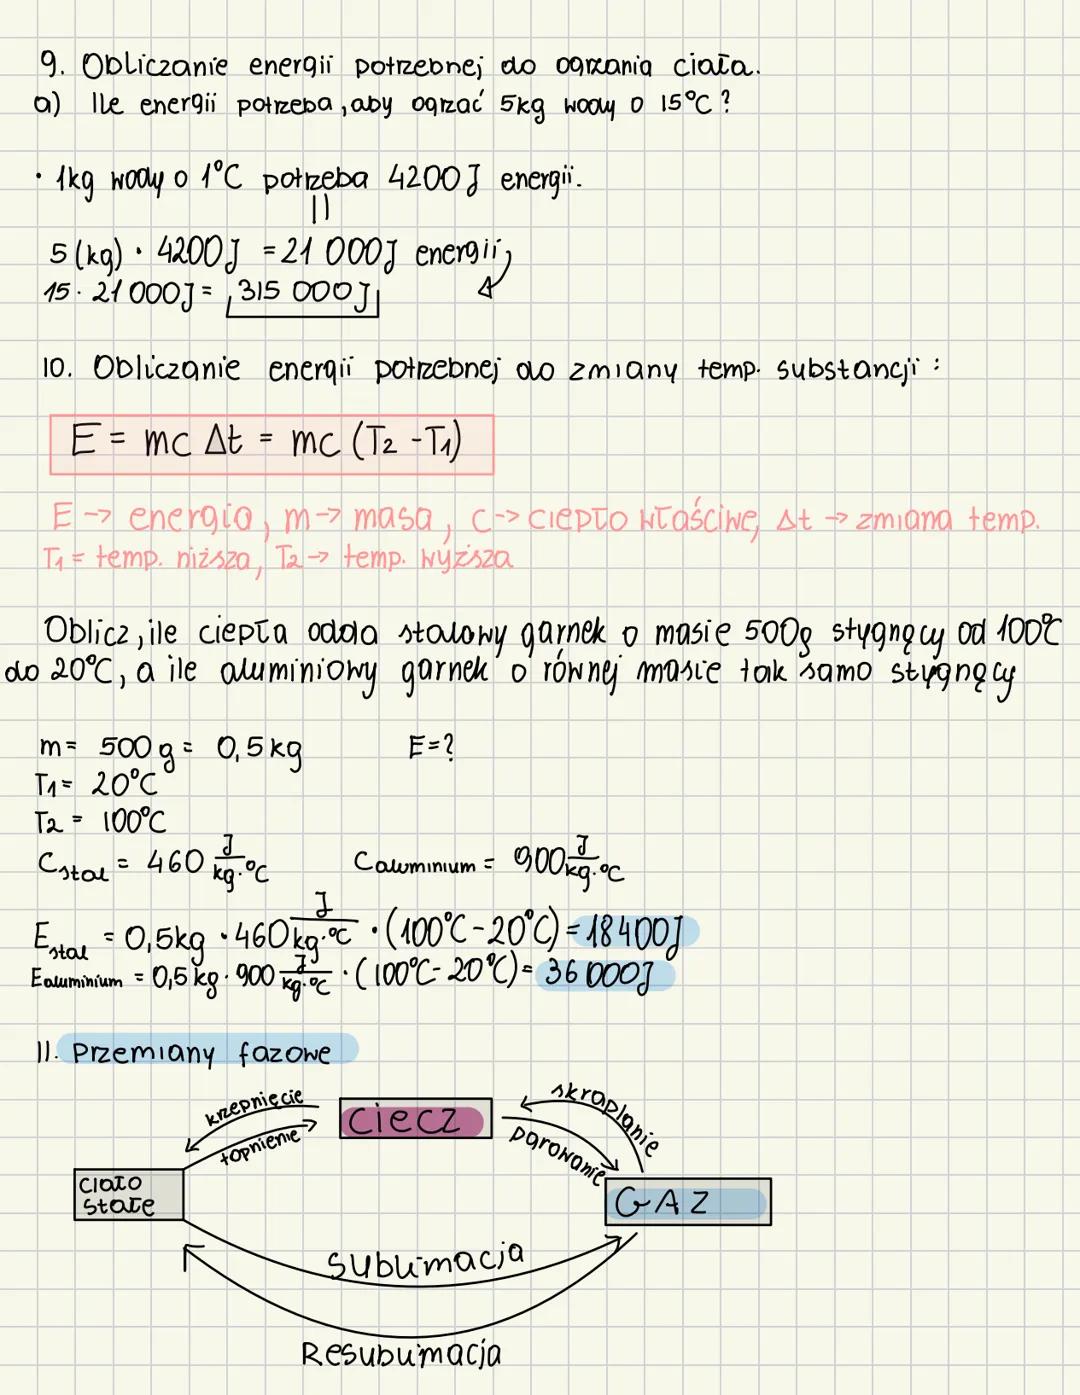 9. Obliczanie energii potrzebnej do ogrzania ciała.
a) Ile energii potrzeba, aby ogrzać 5kg wody o 15°C?
· 1kg wody o 1°C potrzeba 4200J energii.
5 (kg) · 4200J = 21 000J energii,
15 · 21 000J = 315 000J
10. Obliczanie energii potrzebnej do zmiany temp. substancji:
E = mc Δt = mc (T₂ - T₁)
E → energia, m → masa, c -> ciepło właściwe, Δt → zmiana temp.
T₁ = temp. niższa, T₂ → temp. wyższa
Oblicz, ile ciepła odda stalowy garnek o masie 500g stygnący od 100°C
do 20°C, a ile aluminiowy garnek o równej masie tak samo stygnący
m = 500g = 0,5kg E=?
T₁ = 20°C
T₂ = 100°C
Cstal = 460 J/kg·°C Caluminium = 900 J/kg·°C
Estal = 0,5kg · 460 J/kg·°C · (100°C - 20°C) = 18 400J
Ealuminium = 0,5kg · 900 J/kg·°C · (100°C - 20°C) = 36 000J
11. Przemiany fazowe
krzepnięcie
skraplanie
ciecz
topnienie
parowanie
ciało
stałe
GAZ
Sublimacja
Resublimacja